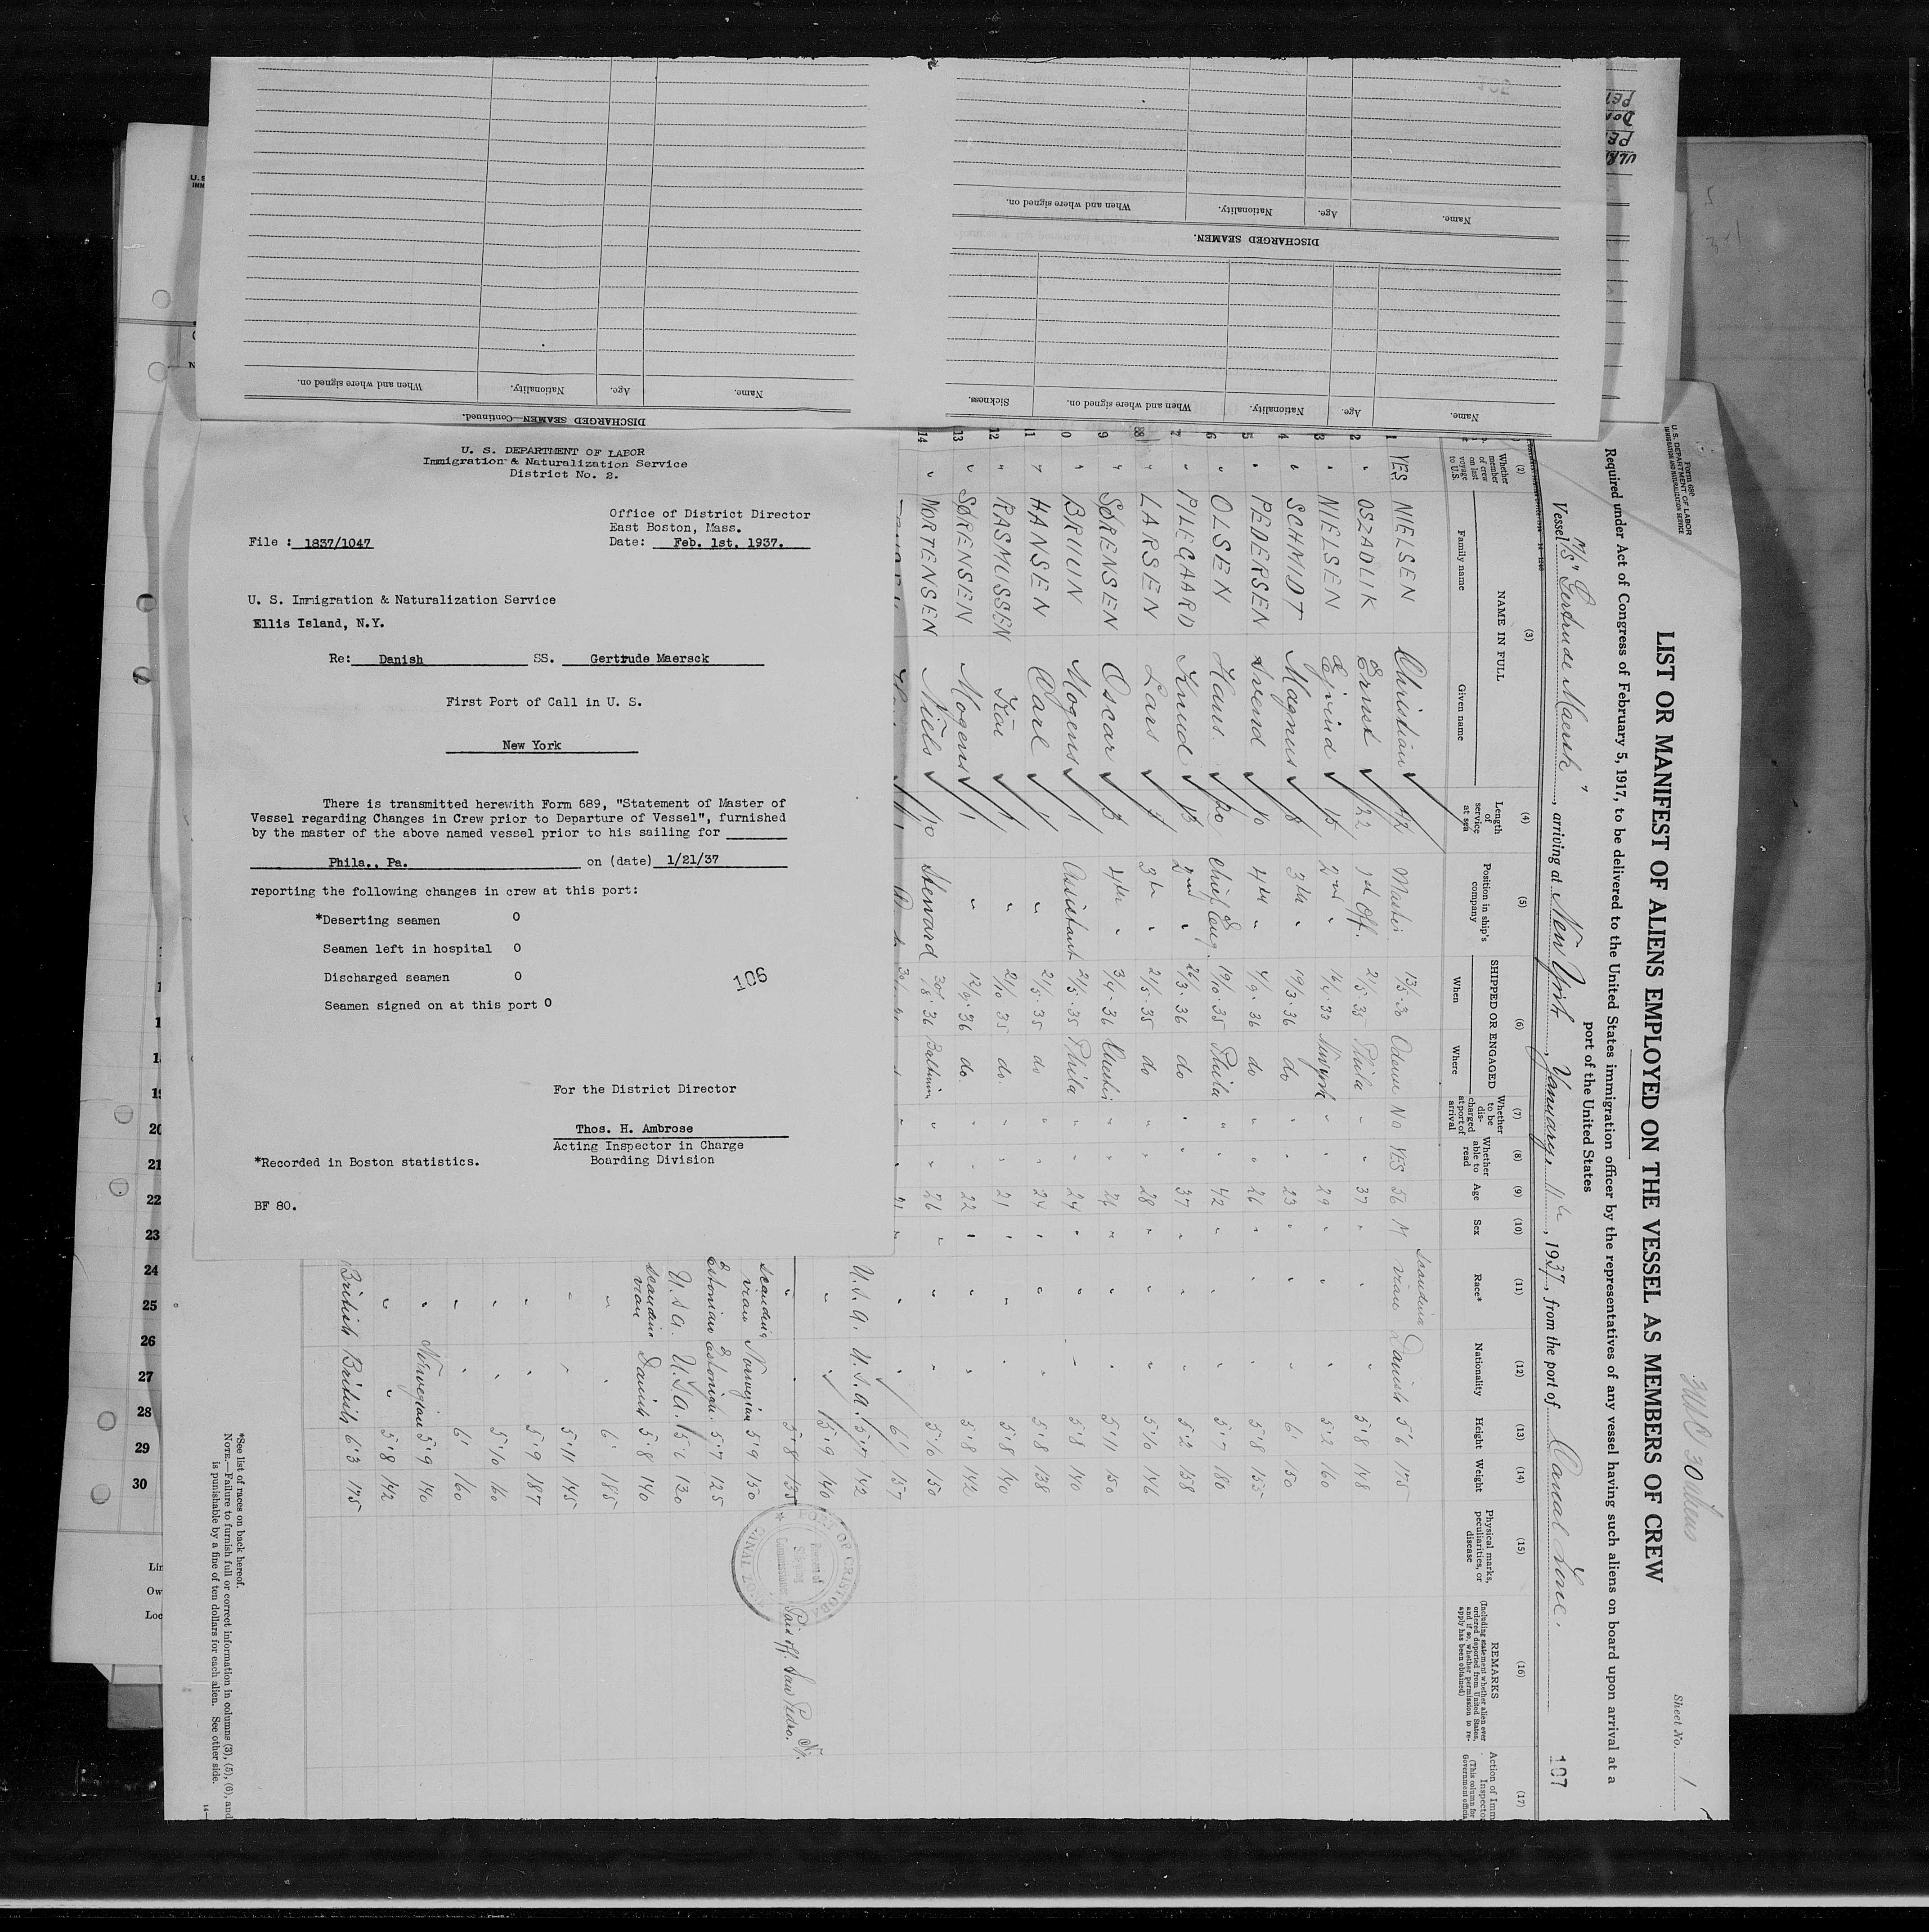 U. S. DEPARTMENT OF LABOR
Immigration & Naturalization Service
District No. 2.
Office of District Director
East Boston, Mass.
File : 1837/1047
Date: Feb. 1st, 1937.
U. S. Immigration & Naturalization Service
Ellis Island, N.Y.
Re: Danish SS. Gertrude Maersck
First Port of Call in U. S.
New York
There is transmitted herewith Form 689, "Statement of Master of
Vessel regarding Changes in Crew prior to Departure of Vessel", furnished
by the master of the above named vessel prior to his sailing for
Phila., Pa. on (date) 1/21/37
reporting the following changes in crew at this port:
*Deserting seamen 0
Seamen left in hospital 0
Discharged seamen 0
Seamen signed on at this port 0
106
For the District Director
Thos. H. Ambrose
Acting Inspector in Charge
Boarding Division
*Recorded in Boston statistics.
BF 80.
DISCHARGED SEAMEN—Continued.
Name. Age. Nationality. When and where signed on.
Name. Age. Nationality. When and where signed on. Sickness.
DISCHARGED SEAMEN.
Name. Age. Nationality. When and where signed on.
Form 680
U. S. DEPARTMENT OF LABOR
IMMIGRATION AND NATURALIZATION SERVICE
Sheet No. 1
LIST OR MANIFEST OF ALIENS EMPLOYED ON THE VESSEL AS MEMBERS OF CREW
Required under Act of Congress of February 5, 1917, to be delivered to the United States immigration officer by the representatives of any vessel having such aliens on board upon arrival at a
port of the United States
Vessel M/S "Gertrude Maersk", arriving at New York, January, 11th, 1937, from the port of Canal Zone.
107
(2) (3) (4) (5) (6) (7) (8) (9) (10) (11) (12) (13) (14) (15) (16) (17)
Whether member of crew on last voyage to U.S.
NAME IN FULL
Family name Given name
Length of service at sea
Position in ship's company
SHIPPED OR ENGAGED
When Where
Whether to be discharged at port of arrival
Whether able to read
Age Sex Race* Nationality Height Weight
Physical marks, peculiarities, or disease
REMARKS
(Including statement whether alien ever ordered deported from United States, and if so, whether permission to reapply has been obtained)
1 YES NIELSEN Christian 42 Master 13/5-30 Odense No YES 56 M Scandinavian Danish 5'6 175
2 " OSZADLIK Ernst 22 1st Off. 21/5-35 Phila " " 37 " 5'8 148
3 " NIELSEN Ejvind 15 2nd " 16/4-33 Newyork " " 29 " " " 5'2 160
4 " SCHMIDT Magnus 8 3rd " 19/3-36 do " " 23 " " " 6' 150
5 " PEDERSEN Svend 10 4th " 4/9-36 do " " 26 " " " 5'8 155
6 " OLSEN Hans 20 Chief Eng. 19/10-35 Phila " " 42 " " " 5'7 180
7 " PILEGAARD Knud 13 2nd " 26/3-36 do " " 37 " " 5'2 158
8 " LARSEN Lars 7 3th " 21/5-35 do " " 28 " " " 5'10 146
9 " SØRENSEN Oscar 3 4th " 3/4-36 " " 26 " " " 5'11 150
10 " BRUUN Mogens 1 Assistant 21/5-35 Phila " " 24 " " " 5'8 140
11 " HANSEN Carl 1 " 21/5-35 do " " 24 " " " 5'8 138
12 " RASMUSSEN Kai " 21/10-35 do. " " 21 " " " 5'8 140
13 " SØRENSEN Mogens 1 " 12/9-36 do. " " 22 " " " 5'8 142
14 " MORTENSEN Niels 10 Steward 30/8-36 " " 26 " " " 5'10 150
" " 6' 157
U.S.A. U.S.A. 5'7 142
" 5'9 140
" " 5'8 135
Scandinavian Norwegian 5'9 150
Estonian Estonian 5'7 125
U.S.A. U.S.A. 5'6 130
Scandinavian Danish 5'8 140
" " 6' 185
" " 5'11 145
" " 5'9 187
" " 5'10 160
" " 6' 160
" Norwegian 5'9 140
" " 5'8 142
British British 6'3 175
Paid off San Pedro.
PORT OF CRISTOBAL
CANAL ZONE
19
20
21
22
23
24
25
26
27
28
29
30
*See list of races on back hereof.
NOTE.—Failure to furnish full or correct information in columns (3), (5), (6), and
is punishable by a fine of ten dollars for each alien. See other side.